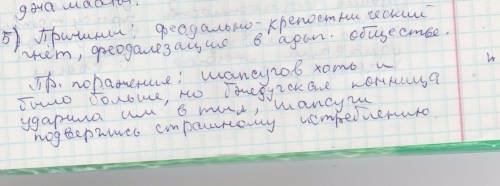 джамааты.
5) Причины: феодально-крепостнический
гнет, феодализация в адыг. обществе.
Пр. поражения: шапсугов хоть и
было больше, но бжедугская конница
ударила им в тыл, шапсуги
подверглись страшному истреблению